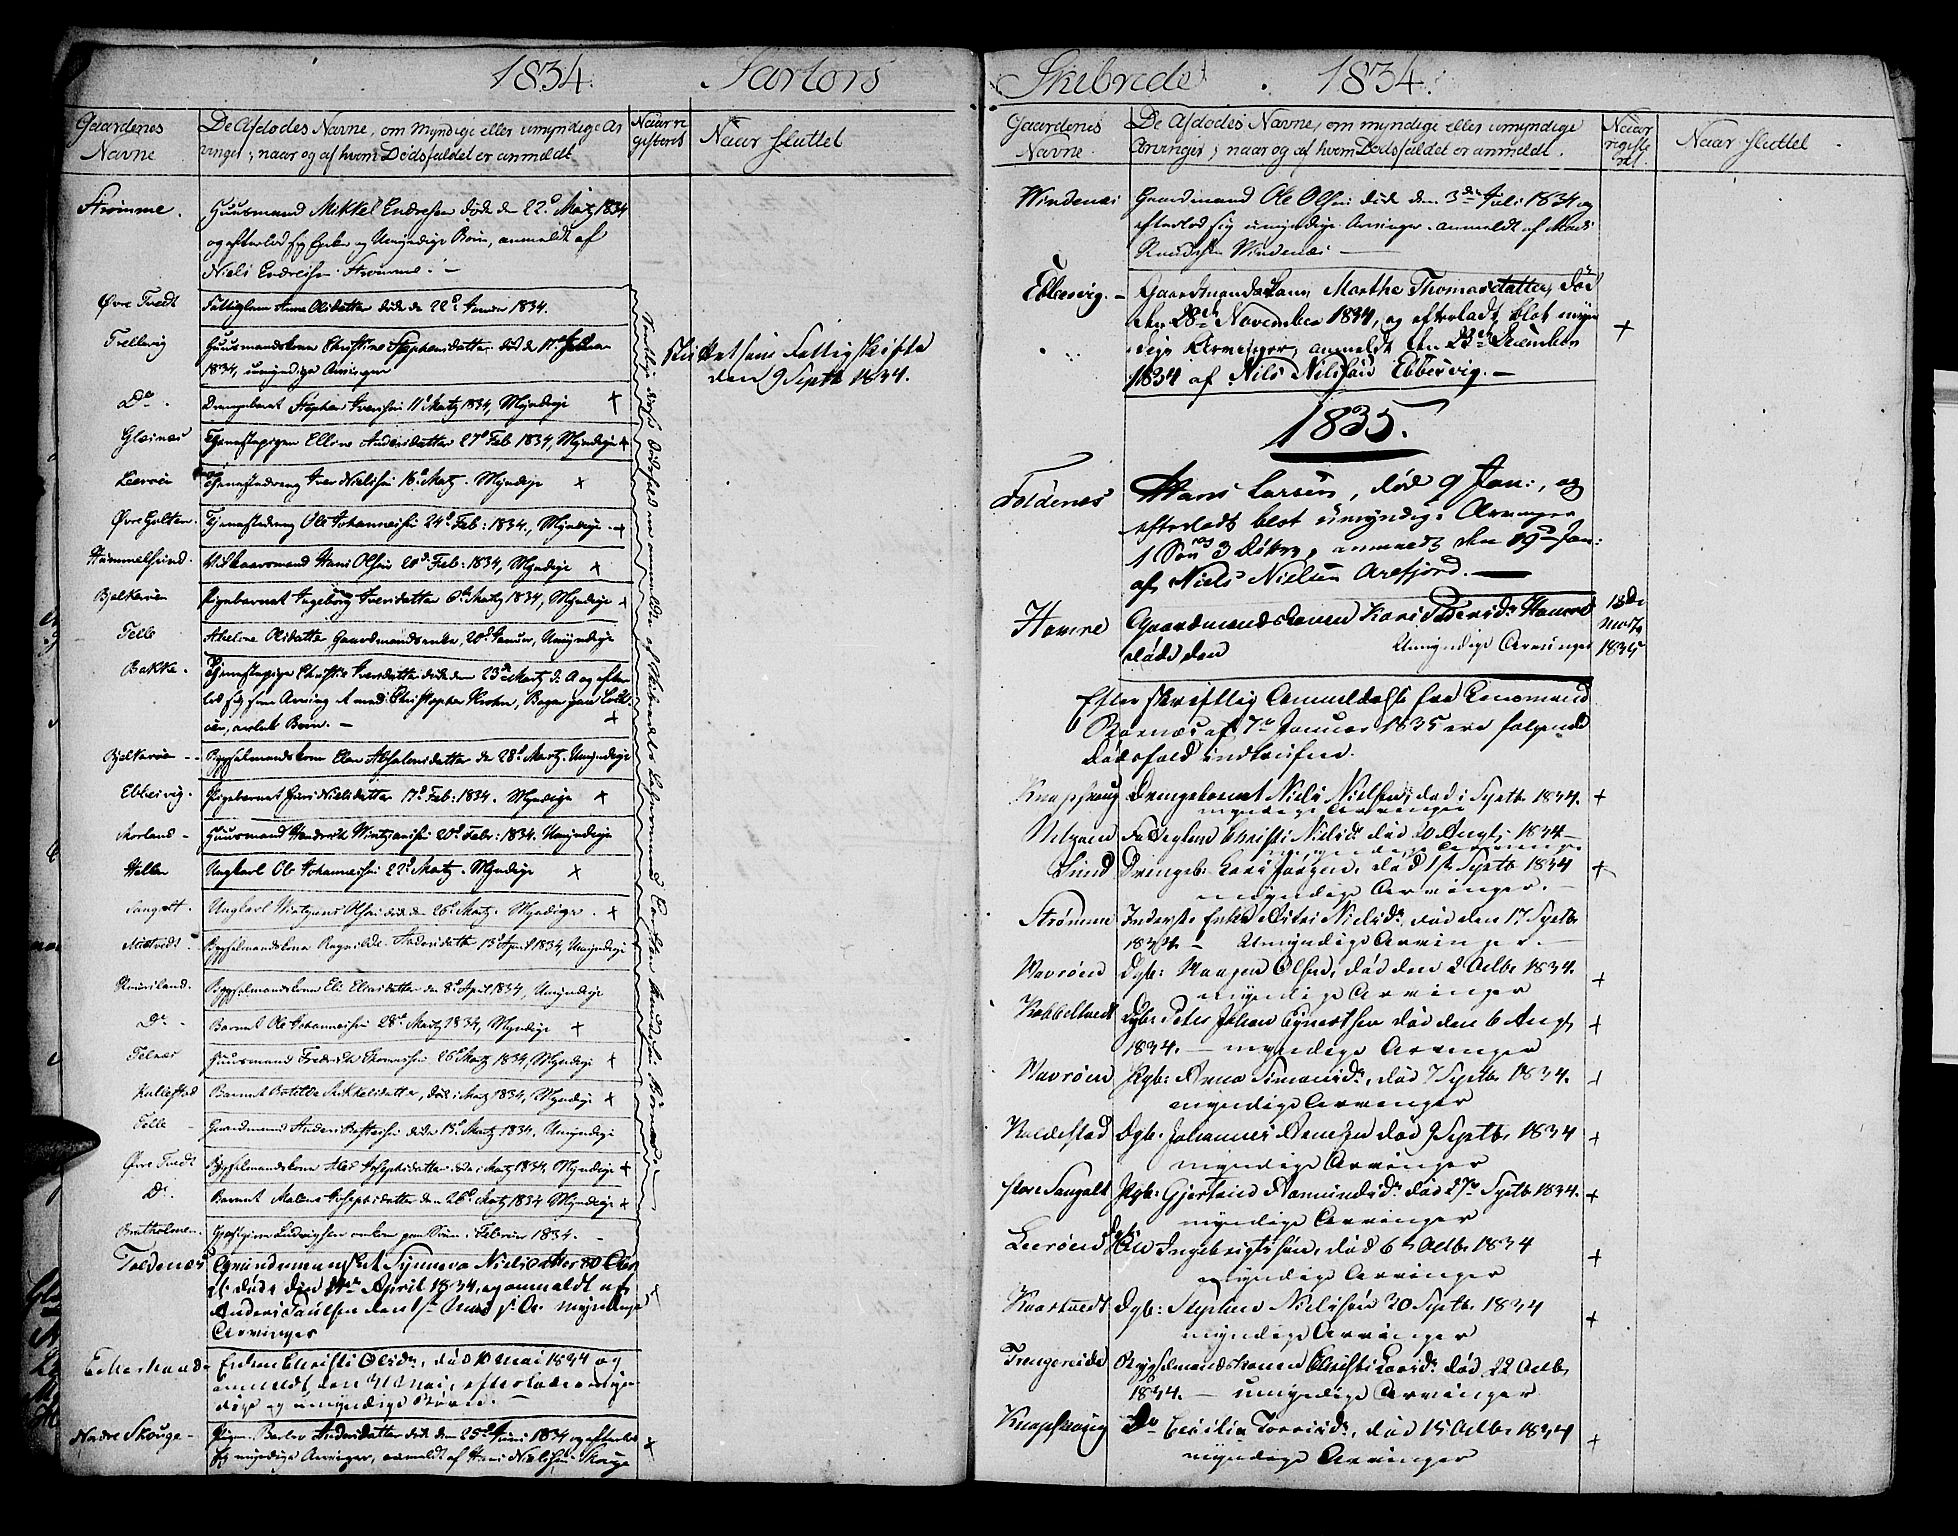 1834. Sartors
Gaardenes Navne
De Afdødes Navne, om Myndige eller umyndige Ar
vinger; naar og af hvem Dødsfaldet er anmeldt
Naar re
gisteret
Naar sluttet
Strømme. Huusmand Mikkel Endresen døde den 22d Martz 1834
og efterlod sig Enke og Umyndige Børn, anmeldt af
Niels Endresen Strømme. –
Øvre Tvedt Fattiglem Anne Olsdatter døde den 22d Januar 1834.
Trellevig Huusmandskone Christine Stephensdatter død d 11te Februar
1834, umyndige Arvinger
sluttet som Fattigskifte
den 9 Septb 1834.
Do. Drengebarnet Stephen Iversen 11d Martz 1834, Myndige +
Glesnæs Tjenestepigen Ellene Andersdatter 27d Feb 1834, Myndige +
Leerøen Tjenestedreng Iver Nielsen 16d Martz. Myndige +
Øvre Golten. Tjenestedreng Ole Johannesen 24d Feb: 1834, Myndige. +
Hummelsund. Vilkaarsmand Hans Olsen 20d Feb: 1834, Myndige +
Bjelkerøen Pigebarnet Ingeborg Iversdatter 6d Martz 1834, Myndige +
Telle Abeline Olsdatter Gaardmandsenke, 20d Januar, Umyndige
Bakke. Tjenestepige Christie Iversdatter døde den 23de Martz d. A og efter
lod sig som Arving
+
Bjelkerøen Bygselmandskone Elen Absalonsdatter den 28d Martz. Umyndige
Ebbesvig. Pigebarnet Guri Nielsdatter 17d Feb: 1834. Myndige +
Skorland Huusmand Hendrik Wintzensen 20d Febr: 1834. Umyndige
Helle Ungkarl Ole Johannesen 22d Martz. Myndige +
Sangolt. Ungkarl Wintzens Olsen døde den 26d Martz. Myndige. +
Bygselmandskone Ragnilde Andersdatter 13d April 1834, Umyndige
Bygselmandskone Eli Eliasdatter den 8d April 1834, Umyndige
Do. Barnet Ole Johannesen 28d Martz 1834, Myndige +
Telnæs Huusmand Fredrik 26d Martz 1834, Myndige +
Kallestad Barnet Botilde Mikkelsdatter, død i Martz 1834, Myndige +
Telle Gaardmand Anders døde 13d Martz 1834. Umyndige
Øvre Tvedt Bygselmandskone Ales Josephsdatter døde i Martz 1834 Myndige +
Do. Barnet Malene Josephsdatter den 26d Martz 1834 Myndige +
Bratholmen. Gjestgiver Ludvigsen omkom paa Søen i Februar 1834. –
Foldenæs Synneva Nielsdatter 80 Aar
død den 14de April 1834, og anmeldt af
Anders Paulsen den Mai s. A. myndige
Arvinger
Ekerhaud Enken Christi Olsdr, død 10 Mai 1834 og
anmeldt den 31 Mai, efterladende myn
dige og umyndige Børn. –
Nordre Skouge Pigen Barbro Andersdatter døde den 25d Juni 1834 og efterlod
sig myndige Arvinger, anmeldt af Hans Nielsen Skouge +
Hvorlige disse Dødsfald ere anmeldte af Skibredets Lensmand Carsten Knudsen Børnæs
Skibrede. 1834.
Gaardenes
Navne.
De Afdødes Navne, om myndige eller umyndige
Arvinger; naar og af hvem Dødsfaldet er anmeldt.
Naar
registe
ret
Naar sluttet
Windenæs Gaardmand Ole Olsen døde den 3de Juli 1834 og
efterlod sig umyndige Arvinger. anmeldt af Mons
Knudsen Windenæs –
Ebbesvig. – Gaardmandskone Marthe Thomasdatter, død
den 28de November 1834, og efterladt blot myn
dige Arvinger, anmeldt den 23de December
1834 af Nils Nilssen Ebbesvig. – +
1835.
Foldenæs Hans Larsen, død 9 Jan:, og
efterladt blot umyndige Arvinger
1 Søn og 3 Døttre, anmeldt den 19de Jan:
af Niels Nielsen Arefjord. –
Havne Gaardmandskonen Kari Pedersdr Haune
døde den Umyndige Arvinger
18de
Marts
1835
Efter skriftlig Anmeldelse fra Lensmand
Børnæs af 7de Januar 1835 ere følgende
Dødsfald indtrufne.
Knapskoug Drengebarnet Niels Nielsen, død i Septb. 1834. +
myndige Arvinger
Fattiglem Christi Nielsdr død 20 Augt: 1834 –
myndige Arvinger
Sund Drengeb: Lars Jørgen, død 1ste Septb 1834 +
myndige Arvinger. –
Strømme Inderste Enke Nielsdr, død den 17 Septb
1834. – Umyndige Arvinger. –
Wavrøen Dgb: Haagen Olsen, død den 2 Octb. 1834. +
myndige Arvinger
Kobbeltvedt Dgb: Peter Johan død den 6 Augt
1834. – myndige Arvinger +
Wavrøen Pgb: Anna Simonsdr, død 7 Septb. 1834. +
myndige Arvinger
Kaldestad Dgb: Johannes død 9 Septb. 1834 +
myndige Arvinger
Store Sangolt Pgb: Gjertrud Aamundsdr død 27de Septb. 1834. +
myndige Arvinger
Leerøen Ole Ingebrigtsen, død 6te Octb. 1834 +
myndige Arvinger
Kaartvedt Dgb: Stephen Nielssen 30 Septb. 1834 +
myndige Arvinger
Trengereide Bygselmandskonen Christi Larsdr død 22 Octb.
1834. – umyndige Arvinger
Knapskoug Do Cecilia død 15 Octb. 1834 +
myndige Arvinger